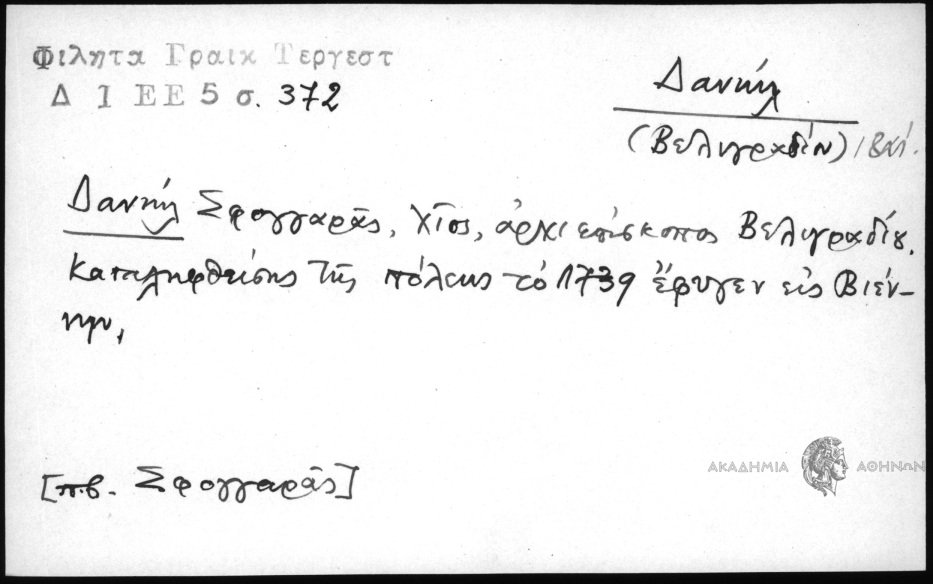 Φιλητα Γραικ Τεργεστ
Δ Ι ΕΕ 5 σ. 372
Δανιήλ
(Βελιγραδίου)
Δανιήλ Σφογγαρᾶς, Χῖος, ἀρχιεπίσκοπος Βελιγραδίου.
Καταληφθείσης τῆς πόλεως τὸ 1739 ἔφυγεν εἰς Βιέν-
νην,
[πβ. Σφογγαρᾶς]
ΑΚΑΔΗΜΙΑ ΑΘΗΝΩΝ